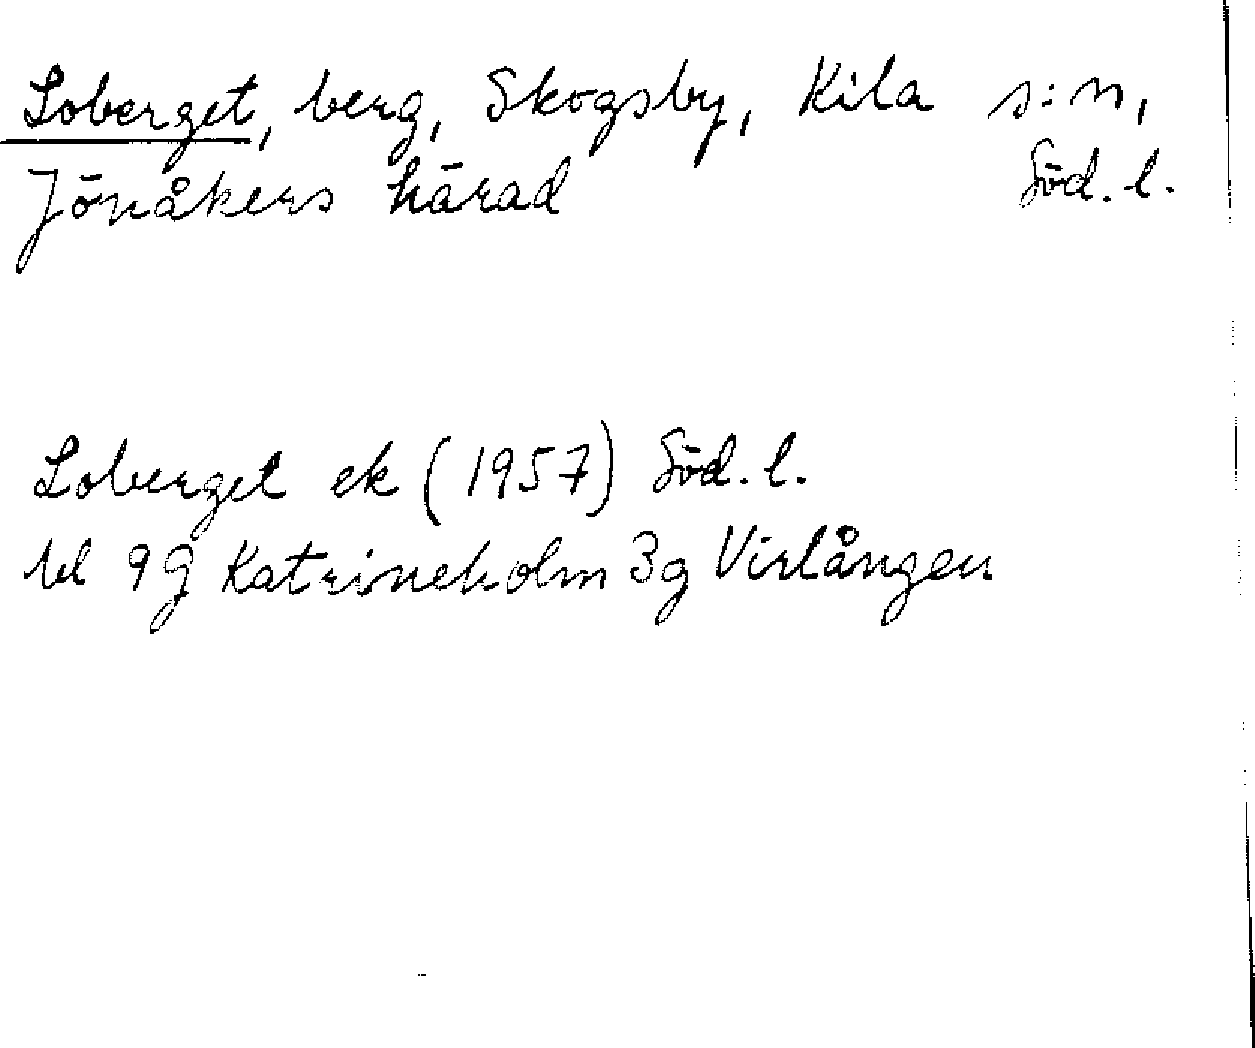 Loberget, berg, Skogsby, Kila s:n,
Jönåkers härad Söd. l.
Loberget ek (1957) Söd. l.
bl 9G Katrineholm 3g Virlången